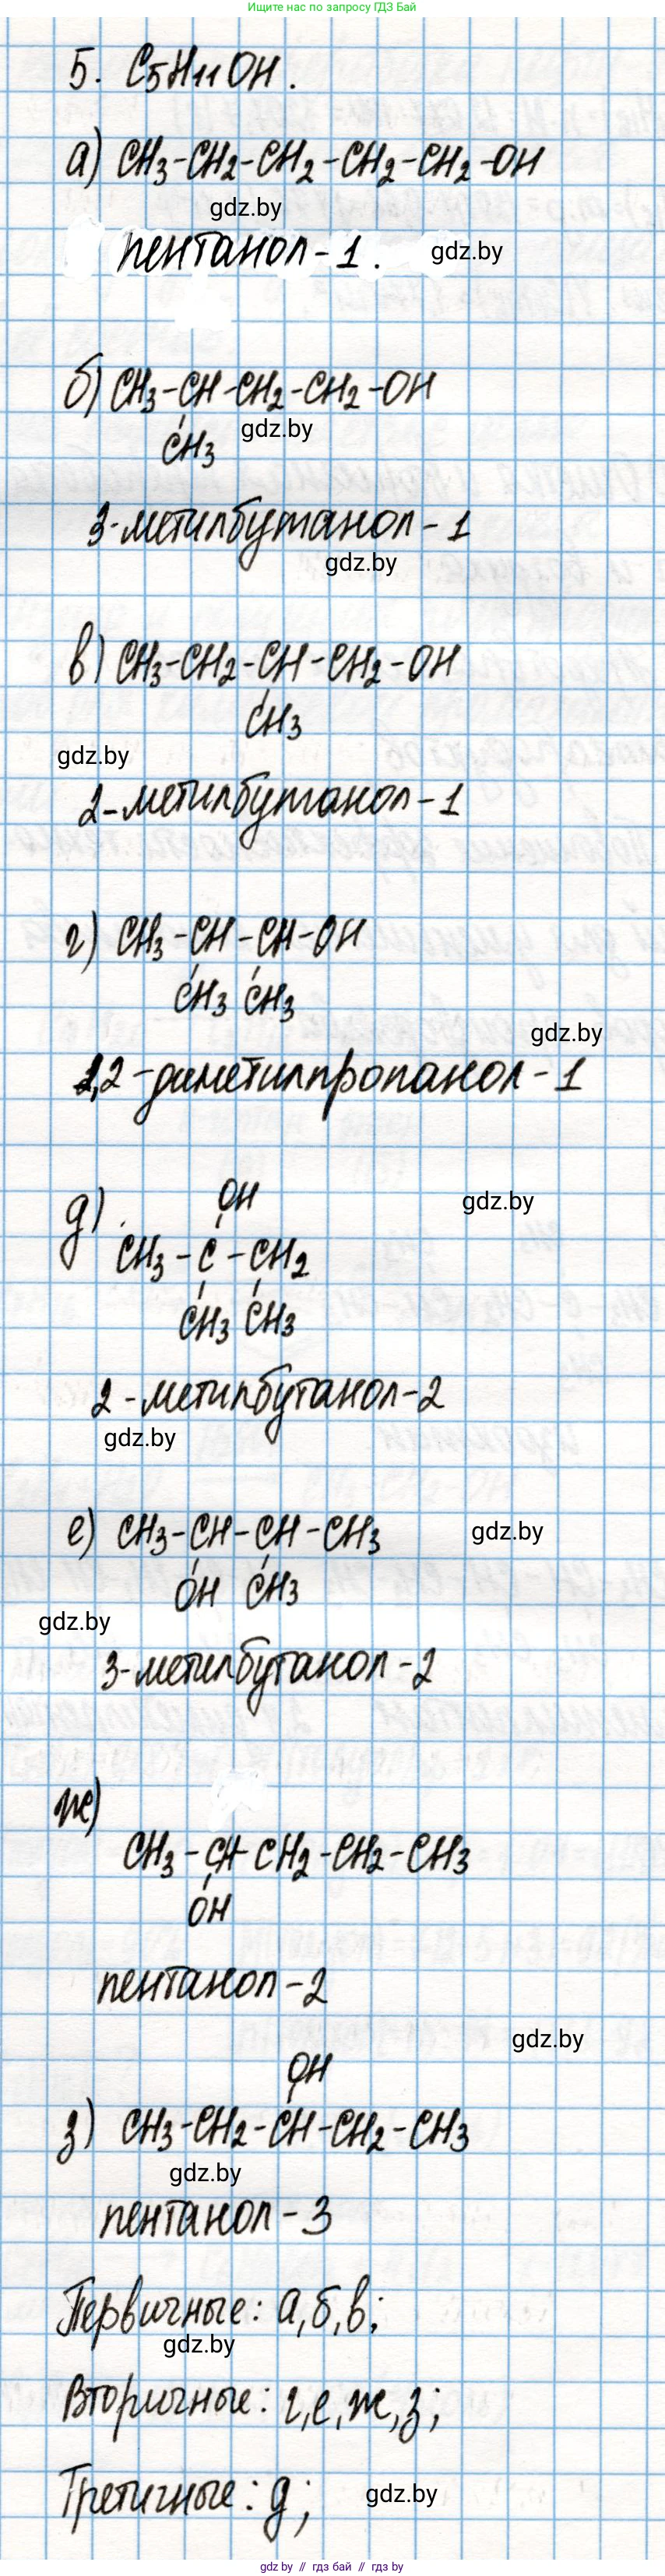 Ищите нас по запросу ГДЗ Бай
5. C5H11OH.
а) CH3-CH2-CH2-CH2-CH2-OH
gdz.by
пентанол-1.
gdz.by
б) CH3-CH-CH2-CH2-OH
gdz.by
CH3
3-метилбутанол-1
gdz.by
в) CH3-CH2-CH-CH2-OH
CH3
gdz.by
2-метилбутанол-1
г) CH3-CH-CH-OH
CH3 CH3
gdz.by
1,2-диметилпропанол-1
OH
gdz.by
д)
CH3-C-CH2
CH3 CH3
2-метилбутанол-2
gdz.by
е) CH3-CH-CH-CH3
gdz.by
OH CH3
gdz.by
3-метилбутанол-2
ж)
CH3-CH-CH2-CH2-CH3
OH
пентанол-2
gdz.by
OH
з) CH3-CH2-CH-CH2-CH3
gdz.by
пентанол-3
Первичные: а,б,в;
gdz.by
Вторичные: г,е,ж,з;
Третичные: д;
gdz.by
gdz by // гдз бай // gdz by